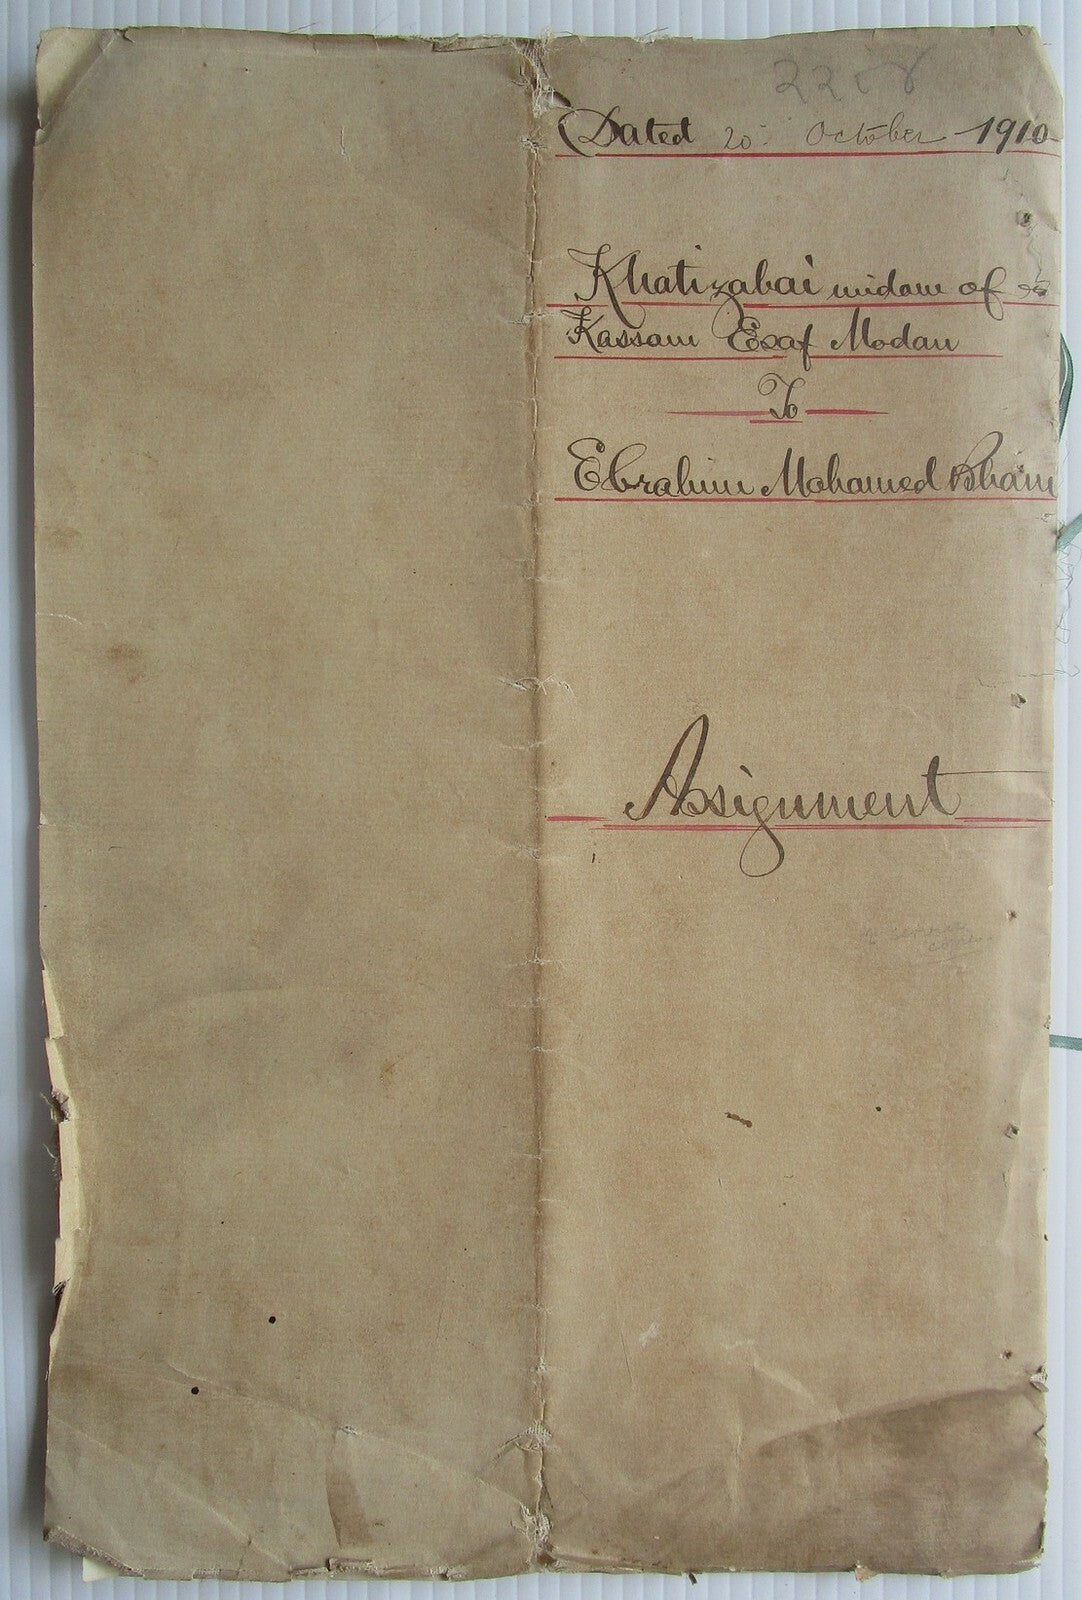 Dated 20 October 1910
Khatizabai widow of
Kassam Esaf Modan
To
Ebrahim Mohamed Bham
Assignment